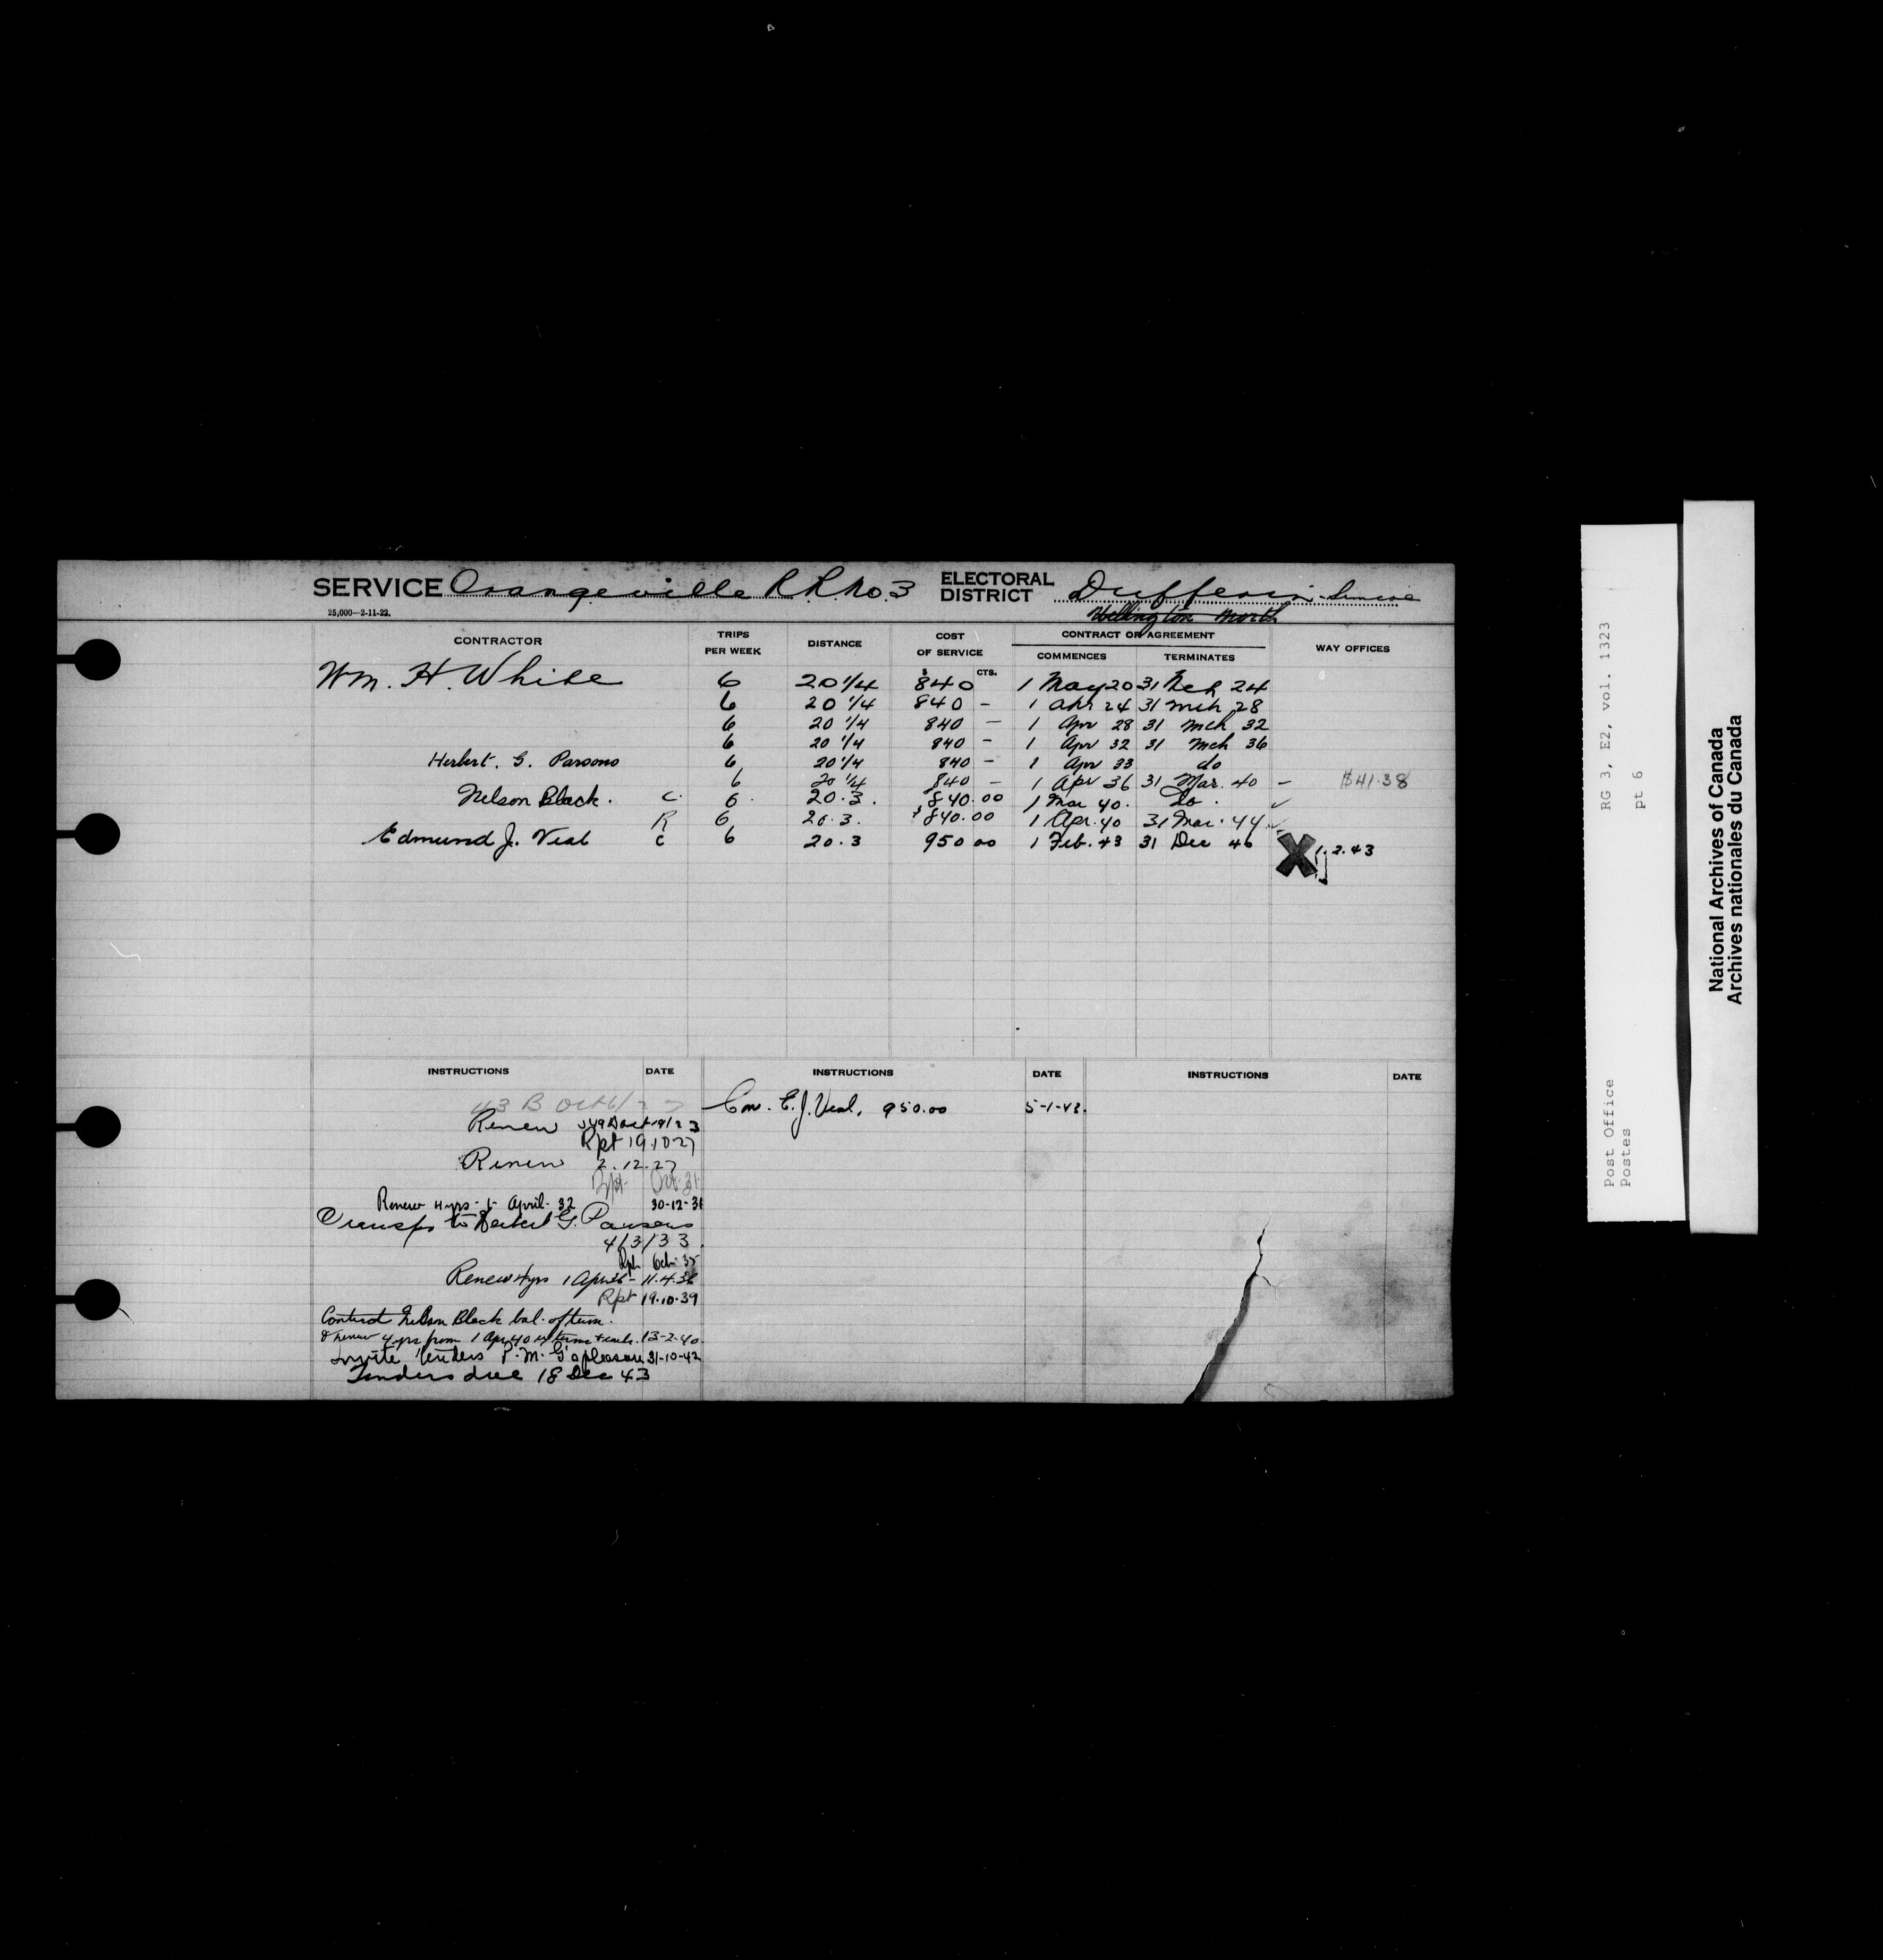 SERVICE Orangeville R.R. No. 3 ELECTORAL DISTRICT Dufferin-Simcoe
25,000—2-11-22. Wellington North
CONTRACTOR TRIPS PER WEEK DISTANCE COST OF SERVICE CONTRACT OR AGREEMENT WAY OFFICES
COMMENCES TERMINATES
$ CTS.
Wm. H. White 6 20 1/4 840 1 May 20 31 Mch 24
6 20 1/4 840 – 1 Apr 24 31 Mch 28
6 20 1/4 840 – 1 Apr 28 31 Mch 32
6 20 1/4 840 – 1 Apr 32 31 Mch 36
Herbert. G. Parsons 6 20 1/4 840 – 1 Apr 33 do
6 20 1/4 840 – 1 Apr 36 31 Mar. 40 – $41.38
Nelson Black. C. 6. 20.3. $840.00 1 Mar 40. do. ✓
R 6 20.3. $840.00 1 Apr. 40 31 Mar. 44 ✓
Edmund J. Veal C 6 20.3 950 00 1 Feb. 43 31 Dec 46 X 1.2.43
INSTRUCTIONS DATE INSTRUCTIONS DATE INSTRUCTIONS DATE
43 B Oct
Con. E. J. Veal, 950.00 5-1-43.
Renew
Rpt 19.10.27
Renew 2.12.27
Rpt Oct 31
Renew 4 yrs - 1 - April - 32 30-12-31
Transfer to Herbert G. Parsons
4/3/33.
Rpt Oct. 35
Renew 4 yrs 1 Apr 36 - 11.4.36
Rpt 19.10.39
Contract Nelson Black bal. of term.
& renew 4 yrs from 1 Apr 40 terms 13-2-40.
Invite tenders P.M.G's pleasure 31-10-42
Tenders due 18 Dec 43
RG 3, E2, vol. 1323
pt 6
Post Office
Postes
National Archives of Canada
Archives nationales du Canada